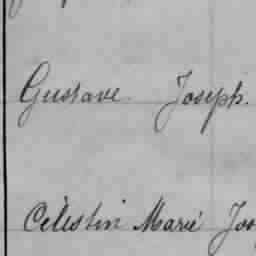 Gustave Joseph.
Célestin Marie Jos